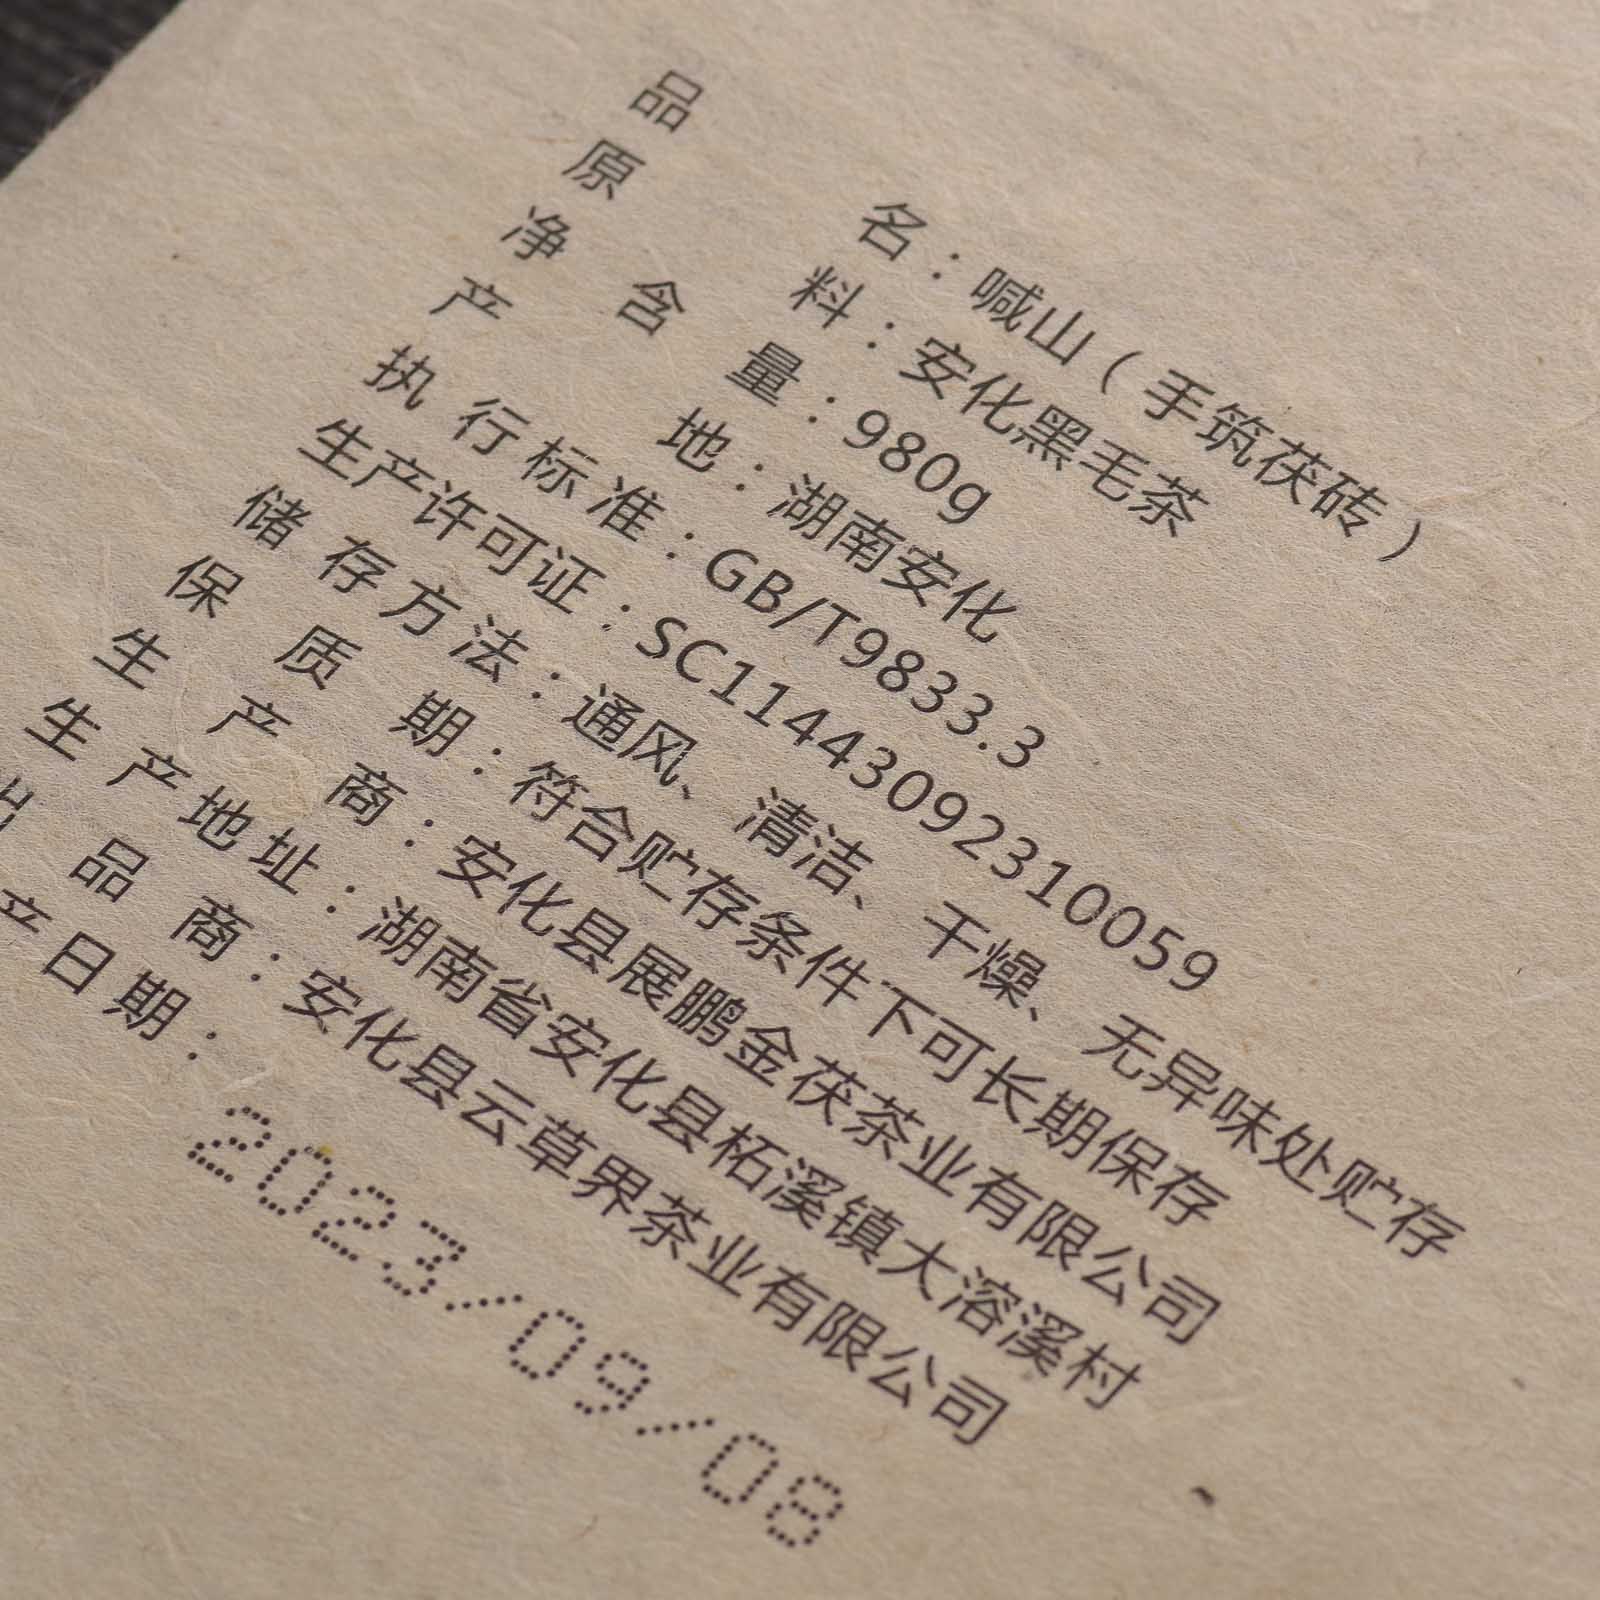 品名：喊山（手筑茯砖）
原料：安化黑毛茶
净含量：980g
产地：湖南安化
执行标准：GB/T9833.3
生产许可证：SC11443092310059
储存方法：通风、清洁、干燥、无异味处贮存
保质期：符合贮存条件下可长期保存
生产商：安化县展鹏金茯茶业有限公司
生产地址：湖南省安化县柘溪镇大溶溪村
出品商：安化县云草界茶业有限公司
产日期：2023/09/08